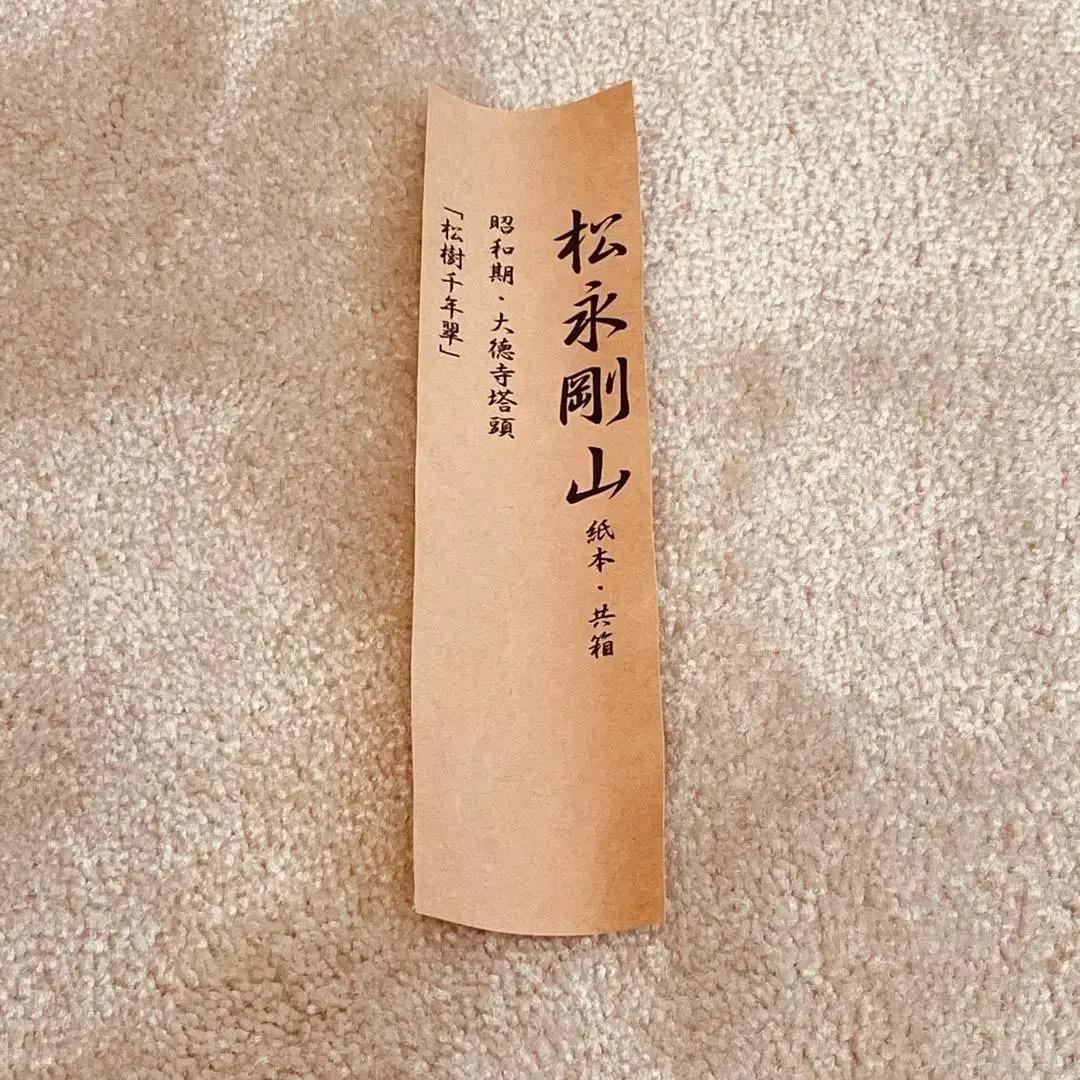 松永剛山 紙本・共箱
昭和期・大徳寺塔頭
「松樹千年翠」